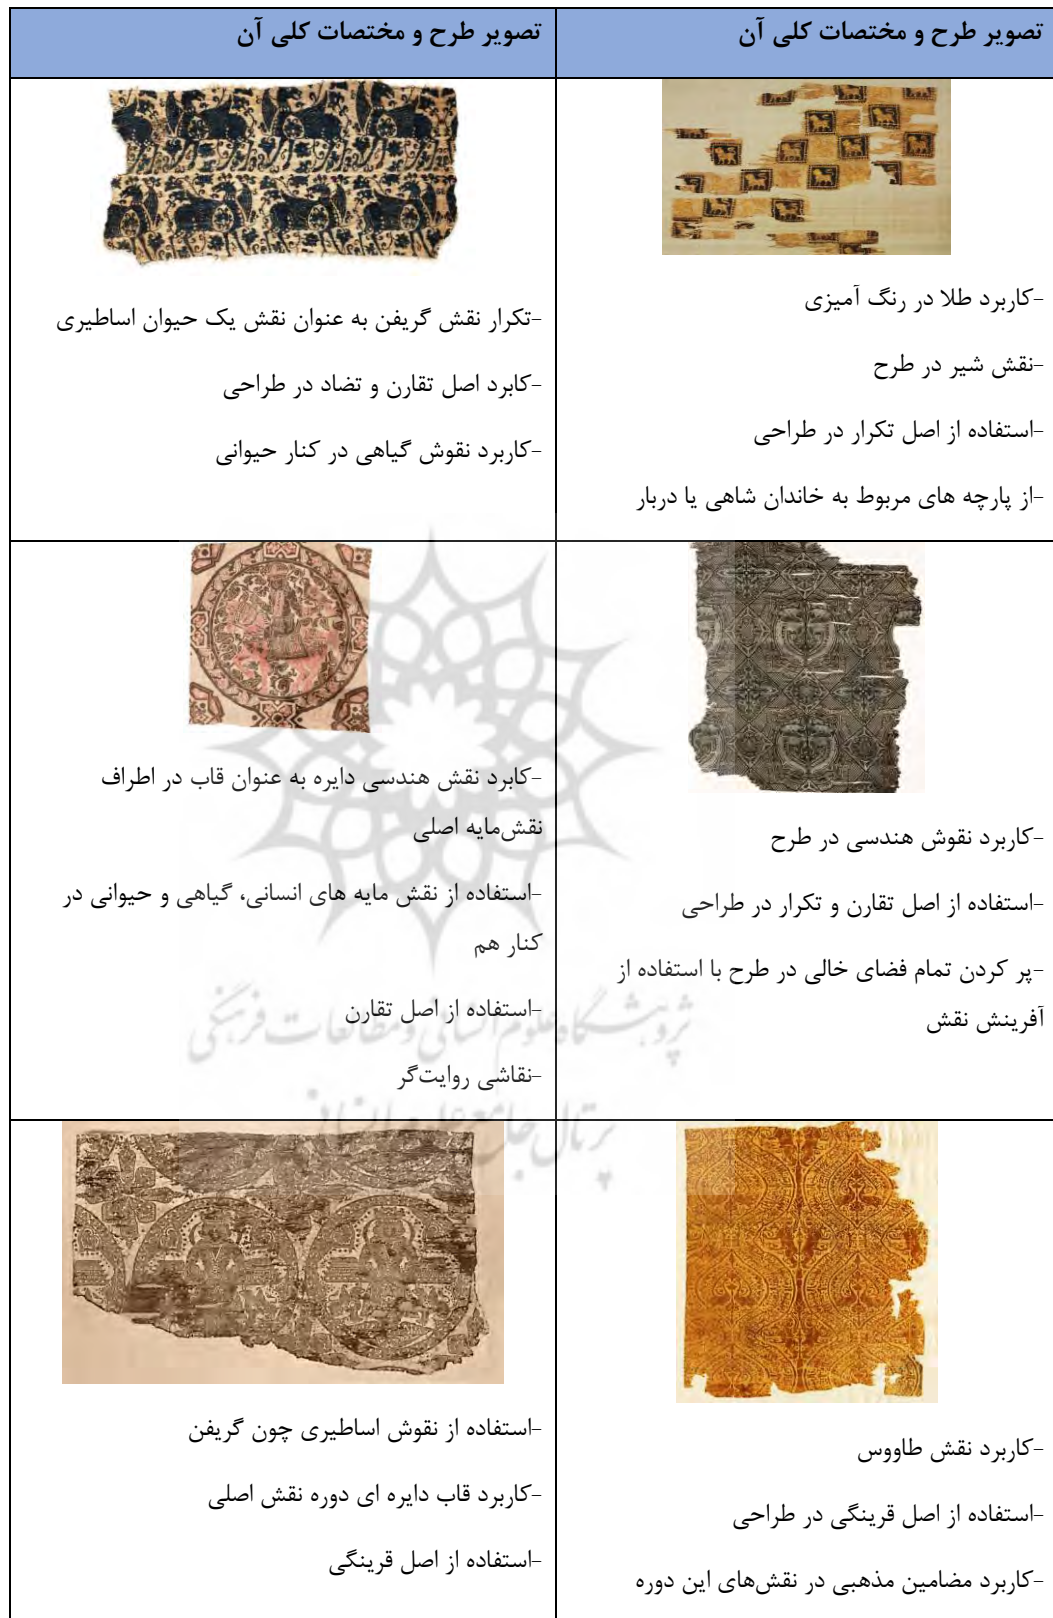 تصویر طرح و مختصات کلی آن
تصویر طرح و مختصات کلی آن
-کاربرد طلا در رنگ آمیزی
-نقش شیر در طرح
-استفاده از اصل تکرار در طراحی
-از پارچه های مربوط به خاندان شاهی یا دربار
-تکرار نقش گریفن به عنوان نقش یک حیوان اساطیری
-کابرد اصل تقارن و تضاد در طراحی
-کاربرد نقوش گیاهی در کنار حیوانی
-کاربرد نقوش هندسی در طرح
-استفاده از اصل تقارن و تکرار در طراحی
-پر کردن تمام فضای خالی در طرح با استفاده از
آفرینش نقش
-کابرد نقش هندسی دایره به عنوان قاب در اطراف
نقش‌مایه اصلی
-استفاده از نقش مایه های انسانی، گیاهی و حیوانی در
کنار هم
-استفاده از اصل تقارن
-نقاشی روایت‌گر
پژوهشگاه علوم انسانی و مطالعات فرهنگی
پرتال جامع علوم انسانی
-کاربرد نقش طاووس
-استفاده از اصل قرینگی در طراحی
-کاربرد مضامین مذهبی در نقش‌های این دوره
-استفاده از نقوش اساطیری چون گریفن
-کاربرد قاب دایره ای دوره نقش اصلی
-استفاده از اصل قرینگی